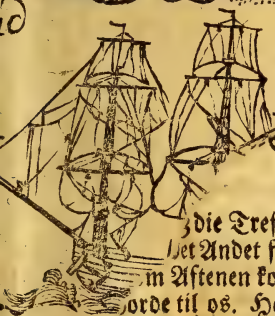 die Tref
et Andet f
m Aftenen ko
orde til os. H